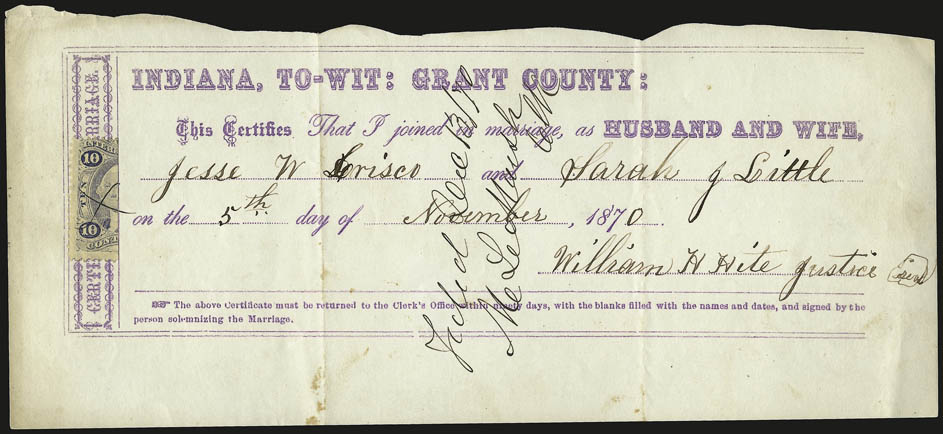 INDIANA, TO-WIT: GRANT COUNTY:
This Certifies That I joined in marriage, as HUSBAND AND WIFE,
Jesse W Crisco and Sarah J Little
on the 5th day of November, 1870.
William H Hite Justice
☞ The above Certificate must be returned to the Clerk's Office within ninety days, with the blanks filled with the names and dates, and signed by the
person solemnizing the Marriage.
10
10
CERTI
RRIAGE.
Filed Dec